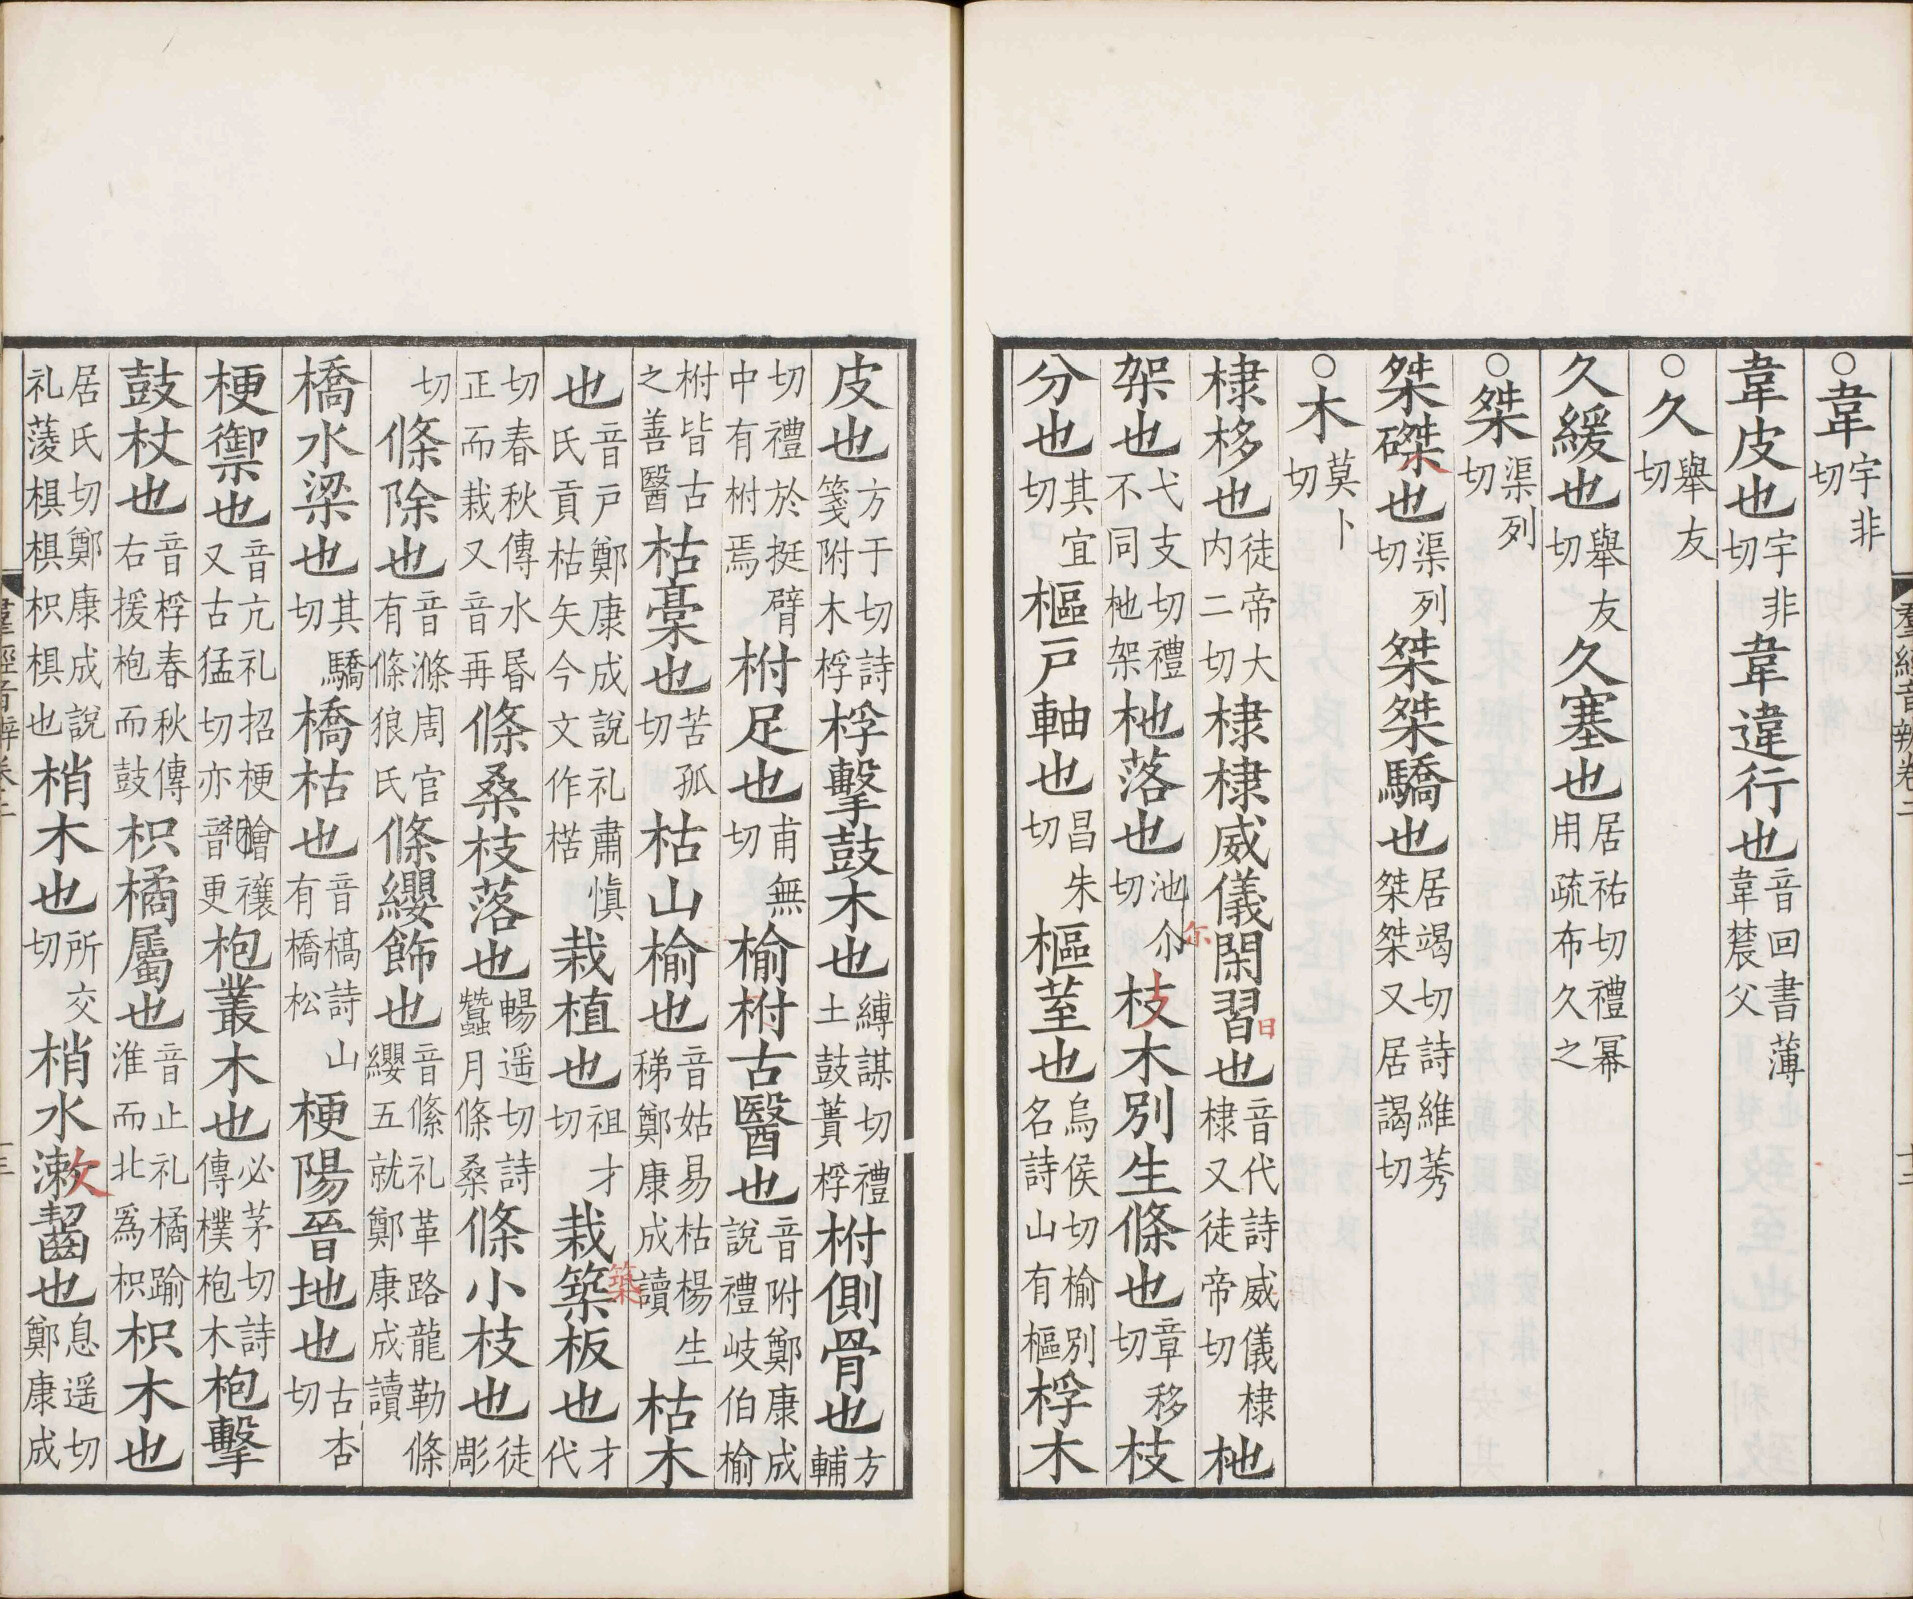 ○韋宇非切
韋皮也宇非切韋違行也音回書薄韋辳父
○久舉友切
久緩也舉友切久塞也居祐切禮冪用疏布久之
○桀渠列切
桀磔也渠列切桀桀驕也居竭切詩維莠桀桀又居謁切
○木莫卜切
棣栘也徒帝大内二切棣棣威儀閑習也音代詩威儀棣棣又徒帝切杝
架也弋支切禮不同杝架杝落也池尒切枝木別生條也章移切枝
分也其宜切樞戶軸也昌朱切樞荎也烏侯切榆別名詩山有樞桴木
羣經音辨卷二
十三
皮也方于切詩箋附木桴桴擊鼓木也縛謀切禮土鼓蕢桴柎側骨也方輔
切禮於挺臂中有柎焉柎足也甫無切榆柎古醫也音附鄭康成說禮岐伯榆
柎皆古之善醫枯槀也苦孤切枯山榆也音姑易枯楊生稊鄭康成讀枯木
也音戶鄭康成說礼肅慎氏貢枯矢今文作楛栽植也祖才切栽築板也才代
切春秋傳水昬正而栽又音再條桑枝落也暢遥切詩蠶月條桑條小枝也徒彫
切條除也音滌周官有條狼氏條纓飾也音絛礼革路龍勒條纓五就鄭康成讀
橋水梁也其驕切橋枯也音槁詩山有橋松梗陽晉地也古杏切
梗禦也音亢礼招梗檜禳又古猛切亦音更枹叢木也必茅切詩傳樸枹木枹擊
鼓杖也音桴春秋傳右援枹而鼓枳橘屬也音止礼橘踰淮而北爲枳枳木也
居氏切鄭康成說礼蔆椇棋枳椇也梢木也所交切梢水漱齧也息遥切鄭康成